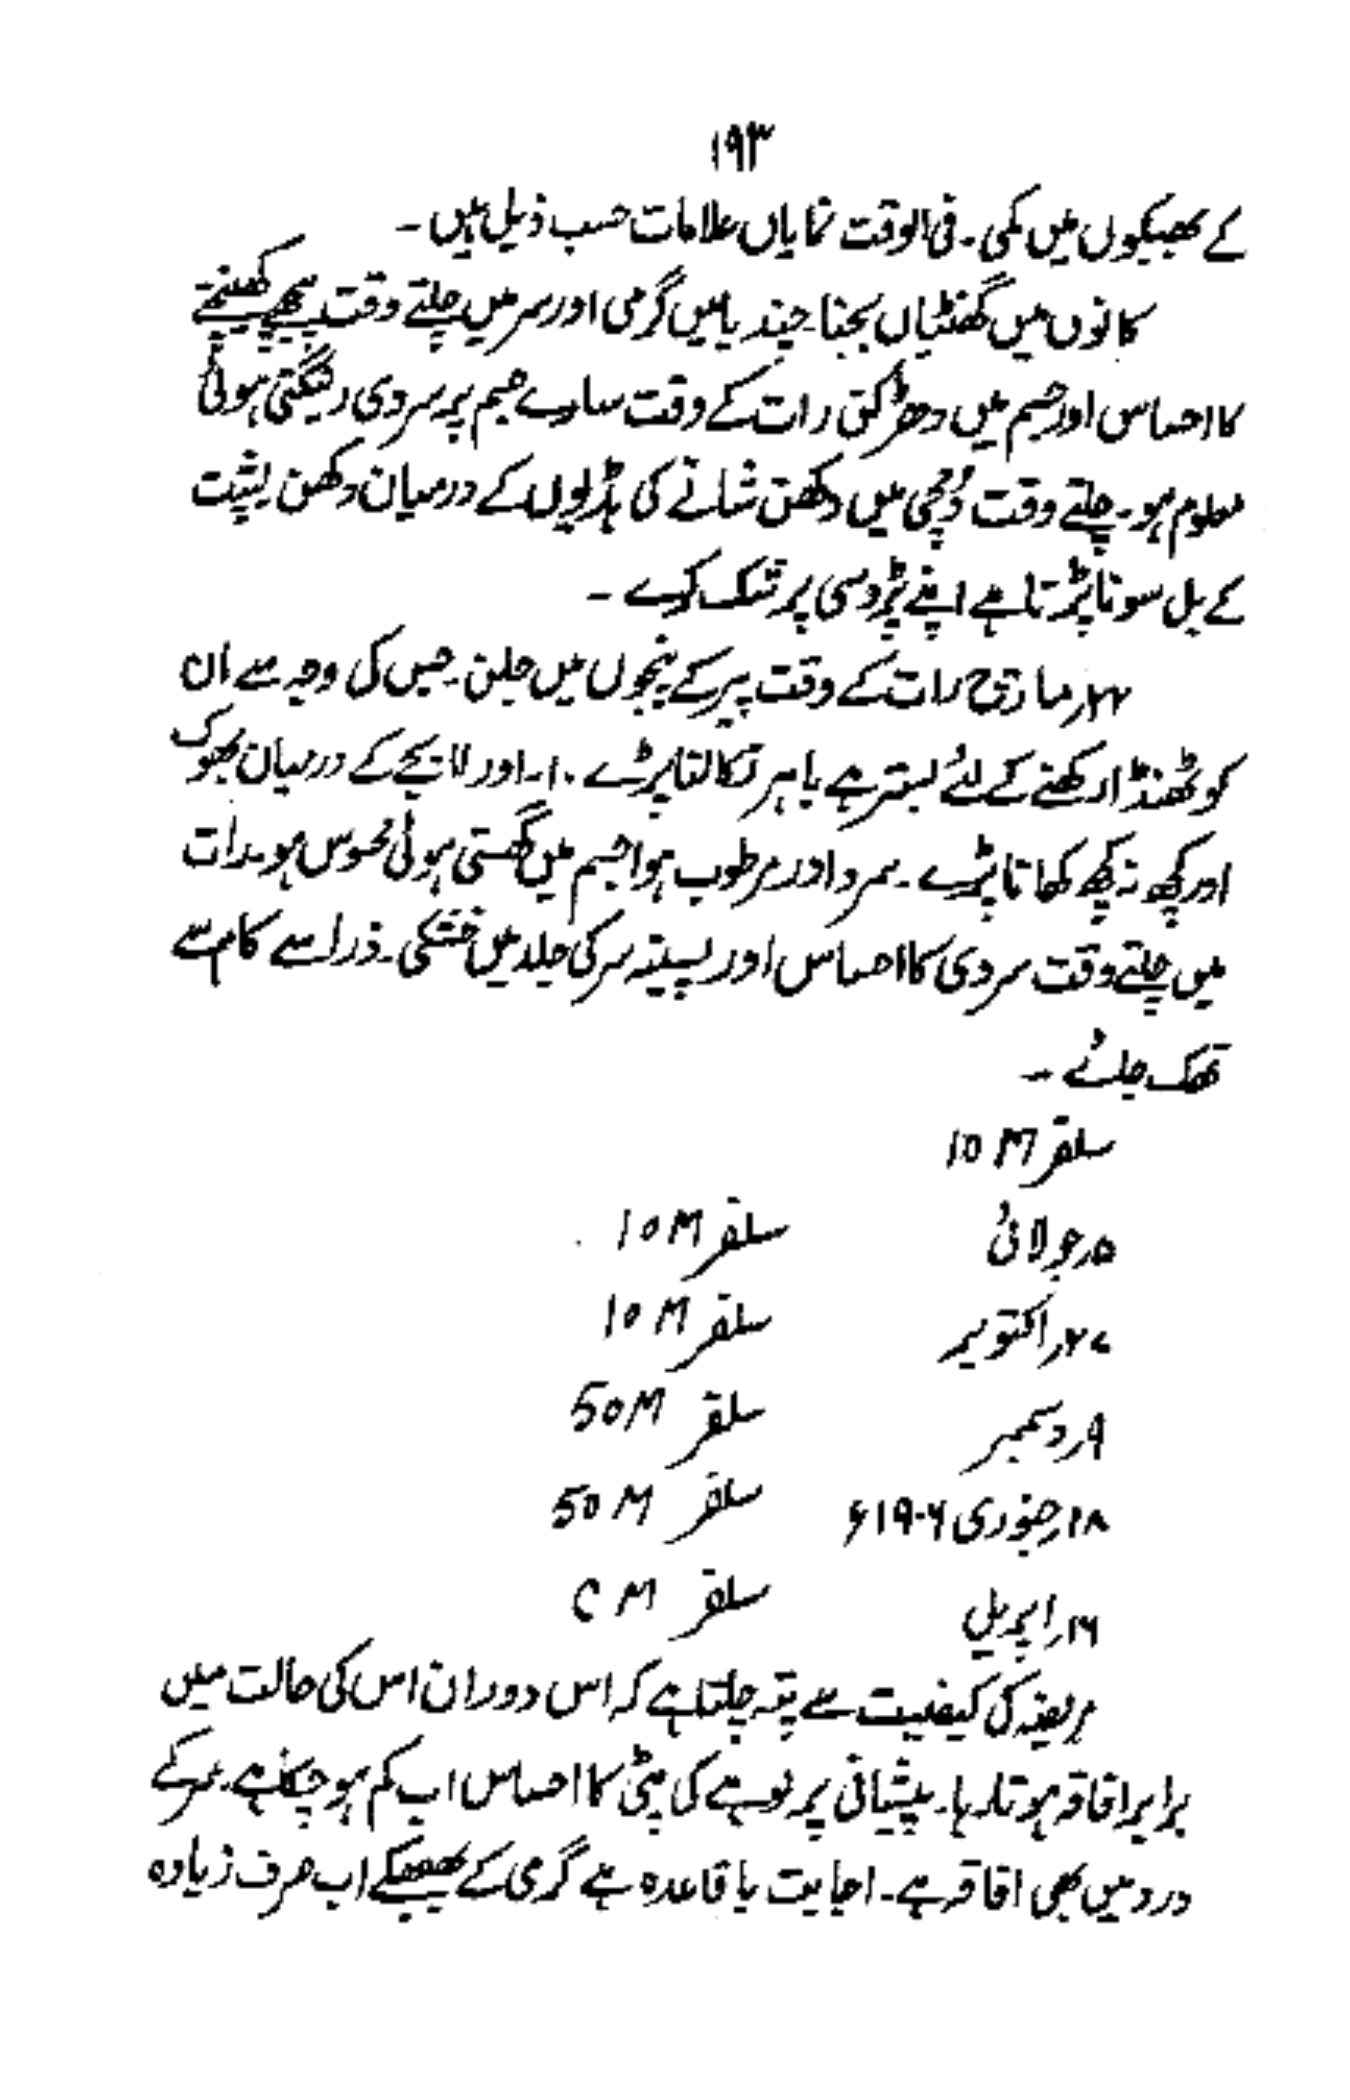 ۱۹۳
کے بھپکوں میں کمی۔ فی الوقت نمایاں علامات حسب ذیل ہیں۔
کانوں میں گھنٹیاں بجنا۔ چندیا میں گرمی اور سر میں چلتے وقت پیچھے کھینچنے
کا احساس اور جسم میں دھڑکن رات کے وقت سارے جسم پر سردی رینگتی ہوئی
معلوم ہو۔ چلتے وقت دُمچی میں دکھن شانے کی ہڈیوں کے درمیان دکھن پشت
کے بل سونا پڑتا ہے اپنے پڑوسی پر شک کرے۔
۲۲؍ مارچ رات کے وقت پیر کے پنجوں میں جلن۔ جس کی وجہ سے ان
کو ٹھنڈا رکھنے کے لئے بستر سے باہر نکالنا پڑے۔ ۱۰۔ اور ۱۱ بجے کے درمیان بھوک
اور کچھ نہ کچھ کھانا پڑے۔ سرد اور مرطوب ہوا جسم میں گھستی ہوئی محسوس ہو۔ رات
میں چلتے وقت سردی کا احساس اور پسینہ سر کی جلد میں خشکی۔ ذرا سے کام سے
تھک جائے۔
سلفر 10 M
۵؍ جولائی سلفر 10 M
۲۷؍ اکتوبر سلفر 10 M
۹؍ دسمبر سلفر 50 M
۱۸؍ جنوری ۱۹۰۶ء سلفر 50 M
۱۶؍ اپریل سلفر C M
مریضہ کی کیفیت سے پتہ چلتا ہے کہ اس دوران اس کی حالت میں
برابر افاقہ ہوتا رہا۔ پیشانی پر لوہے کی پٹی کا احساس اب کم ہو چکا ہے۔ سر کے
درد میں بھی افاقہ ہے۔ اجابت باقاعدہ ہے گرمی کے بھپکے اب صرف زیادہ